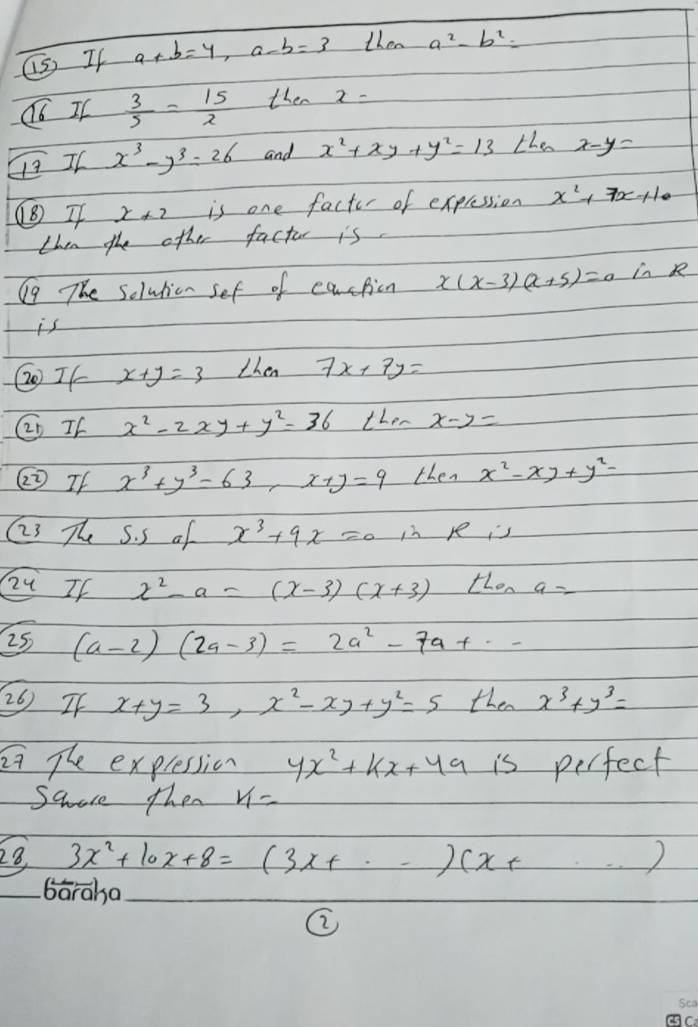 (15) If a+b=4, a-b=3 then a²-b²=
(16 If 3/5 = 15/x then x=
(17 If x³-y³=26 and x²+xy+y²=13 then x-y=
(18) If x+2 is one factor of expression x²+7x+10
then the other factor is
(19 The solution set of equation x(x-3)(x+5)=0 in R
is
(20) If x+y=3 then 7x+7y=
(21) If x²-2xy+y²=36 then x-y=
(22) If x³+y³=63, x+y=9 then x²-xy+y²=
(23 The S.S of x³+9x=0 in R is
(24 If x²-a=(x-3)(x+3) then a=
25) (a-2)(2a-3)=2a²-7a+...
26) If x+y=3, x²-xy+y²=5 then x³+y³=
27 The expression 4x²+kx+49 is perfect
square then k=
28, 3x²+10x+8=(3x+...)(x+...)
baraka
(2)
Sca
CS C